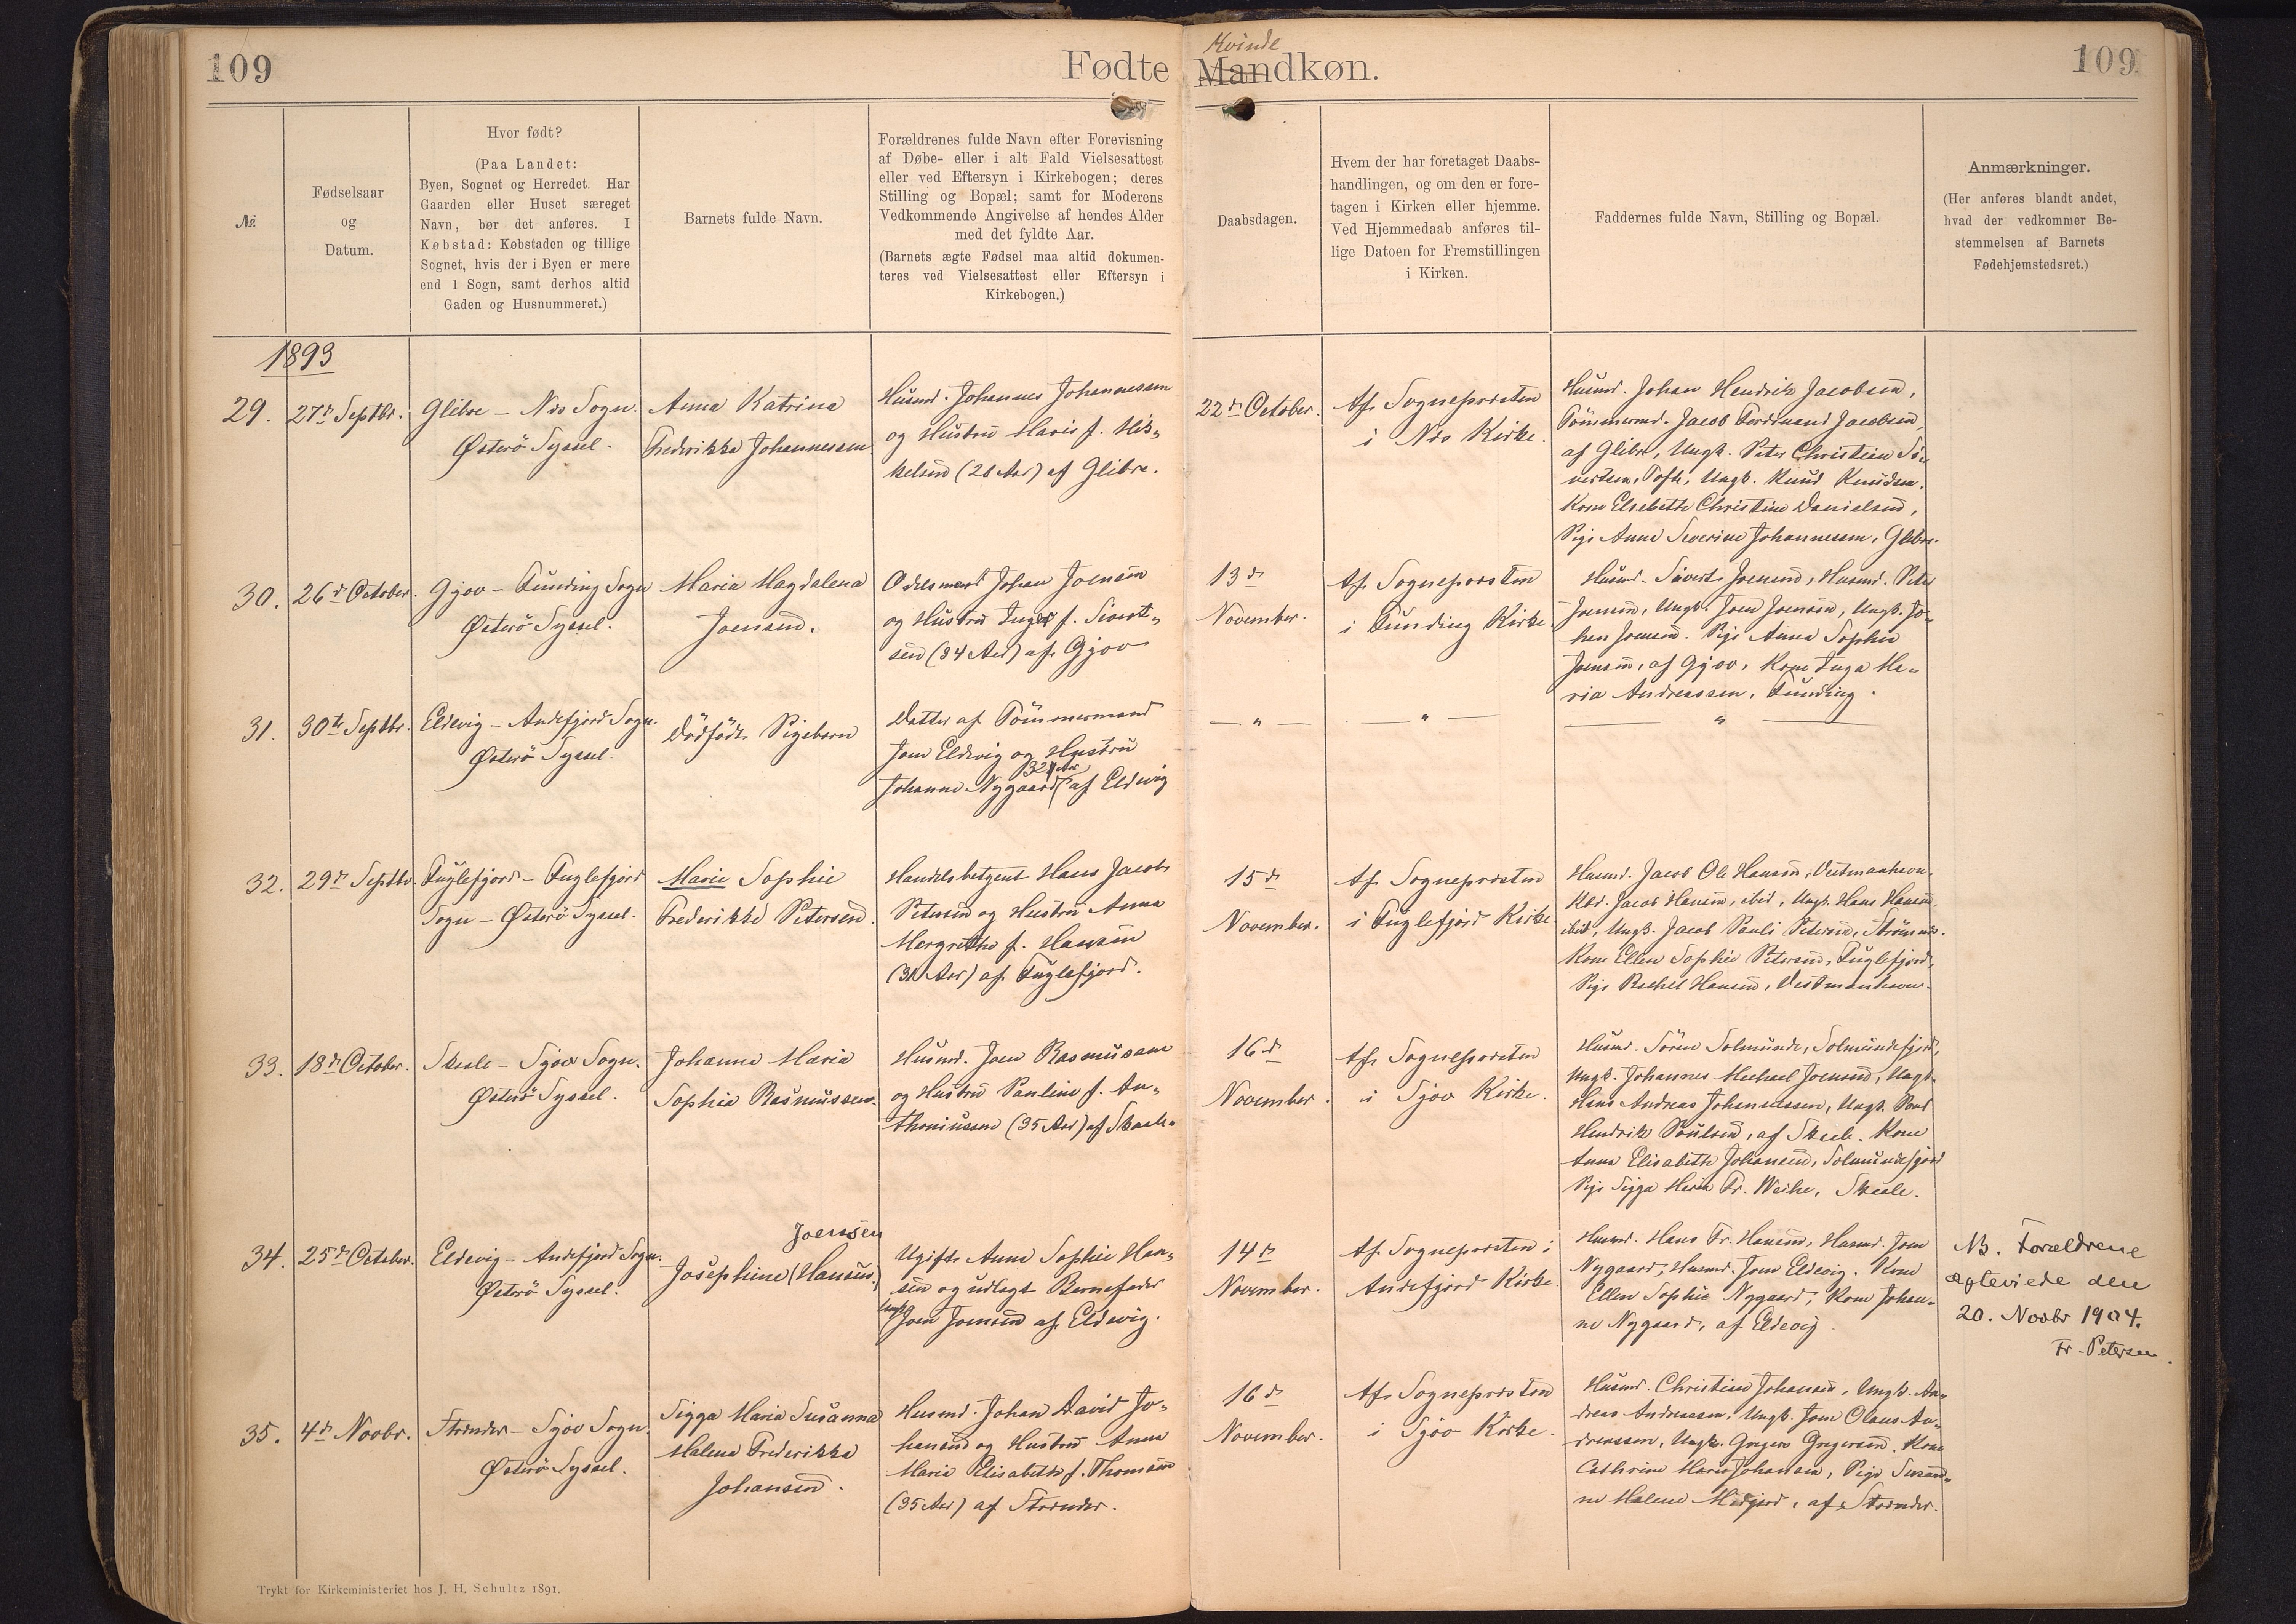 109
Fødte
Kvinde
Mandkøn.
109.
№
Fødselsaar
og
Datum.
Hvor født?
(Paa Landet:
Byen, Sognet og Herredet. Har
Gaarden eller Huset særeget
Navn, bør det anføres. I
Købstad: Købstaden og tillige
Sognet, hvis der i Byen er mere
end 1 Sogn, samt derhos altid
Gaden og Husnummeret.)
Barnets fulde Navn.
Forældrenes fulde Navn efter Forevisning
af Døbe- eller i alt Fald Vielsesattest
eller ved Eftersyn i Kirkebogen; deres
Stilling og Bopæl; samt for Moderens
Vedkommende Angivelse af hendes Alder
med det fyldte Aar.
(Barnets ægte Fødsel maa altid dokumen-
teres ved Vielsesattest eller Eftersyn i
Kirkebogen.)
Daabsdagen.
Hvem der har foretaget Daabs-
handlingen, og om den er fore-
tagen i Kirken eller hjemme.
Ved Hjemmedaab anføres til-
lige Datoen for Fremstillingen
i Kirken.
Faddernes fulde Navn, Stilling og Bopæl.
Anmærkninger.
(Her anføres blandt andet,
hvad der vedkommer Be-
stemmelsen af Barnets
Fødehjemstedsret.)
1893
29.
27d Septbr.
Glibre - Næs Sogn.
Østerö Syssel.
Anna Katrina
Frederikka Johannessen
Husmd. Johannes Johannessen
og Hustrü Maris f. Mik-
kelsen (28 Aar) af Glibre.
22d October.
Af Sognepræsten
i Næs Kirke.
Husmd. Johan Hendrik Jacobsen,
Tömmermd. Jacob Ferdinand Jacobsen,
af Glibre, Ungk. Peter Christian Si-
vertsen, Toft, Ungk. Knud Knüdsen.
Kone Elsebeth Christine Danielsen,
Pige Anna Severine Johannessen, Glibre.
30.
26d October.
Gjov - Funding Sogn
Østerö Syssel.
Maria Magdalena
Joensen.
Odelsmand Johan Joensen
og Hustrü Inger f. Sivert-
sen (34 Aar) af Gjov
13d
November.
Af Sognepræsten
i Funding Kirke
Husmd. Sivert Joensen, Husmd. Peter
Joensen, Ungk. Joen Joensen, Ungk. Jo-
han Joensen. Pige Anna Sophie
Joensen, af Gjov, Kone Inga Ma-
ria Andreassen, Funding.
31.
30te Septbr.
Eldevig - Andefjord Sogn.
Østerö Syssel.
Dödfödt Pigebarn
Datter af Tömmermand
Joen Eldevig og Hustrü
32 Aar
Johanne Nygaard af Eldevig
— " —
— " —
— " —
32.
29d Septbr.
Fuglefjord - Fuglefjord
Sogn - Østerö Syssel.
Marie Sophie
Frederikke Petersen.
Handelsbetjent Hans Jacob
Petersen og Hustrü Anna
Margrethe f. Hansen
(31 Aar) af Fuglefjord.
15d
November.
Af Sognepræsten
i Fuglefjord Kirke
Husmd. Jacob Ole Hansen, Vestmanhavn.
Kbd. Jacob Hansen, ibid, Ungk. Hans Hansen,
ibid, Ungk. Jacob Pauli Petersen, Strömnæs.
Kone Ellen Sophie Petersen, Fuglefjord,
Pige Rachel Hansen, Vestmanhavn.
33.
18d October.
Skaale - Sjov Sogn.
Østerö Syssel.
Johanna Maria
Sophia Rasmussen.
Husmd. Joen Rasmussen
og Hustrü Pauline f. An-
thoniussen (35 Aar) af Skaale.
16d
November.
Af Sognepræsten
i Sjov Kirke.
Husmd. Sören Solmunde, Solmundefjord,
Ungk. Johannes Michael Joensen, Ungk.
Hans Andreas Johannessen, Ungk. Poul
Hendrik Poulsen, af Skaale. Kone
Anna Elisabeth Johansen, Solmundefjord
Pige Sigga Maria Fr. Weihe, Skaale.
34.
25d October.
Eldevig - Andefjord Sogn.
Østerö Syssel.
Joensen
Josephine (Hansen.)
Ugift Anne Sophie Han-
sen og udlagt Barnefader
Ungk. Joen Joensen af Eldevig.
14d
November.
Af Sognepræsten i
Andefjord Kirke
Husmd. Hans Fr. Hansen, Husmd. Joen
Nygaard, Husmd. Joen Eldevig. Kone
Ellen Sophie Nygaard, Kone Johan-
ne Nygaard, af Eldevig.
NB. Forældrene
ægteviede den
20. Novbr 1904.
Fr. Petersen.
35.
4d Novbr.
Strænder - Sjov Sogn.
Østerö Syssel.
Sigga Maria Susanna
Malena Frederikka
Johansen.
Husmd. Johan David Jo-
hansen og Hustrü Anna
Maria Elisabeth f. Thomsen
(35 Aar) af Strænder.
16d
November.
Af Sognepræsten
i Sjov Kirke.
Husmd. Christian Johansen, Ungk. An-
dreas Andreasen, Ungk. Joen Olaus An-
dreassen, Ungk. Gregers Gregersen. Kone
Cathrine Marie Johansen, Pige Susan-
ne Malene Midjord, af Strænder.
Trykt for Kirkeministeriet hos J. H. Schultz 1891.